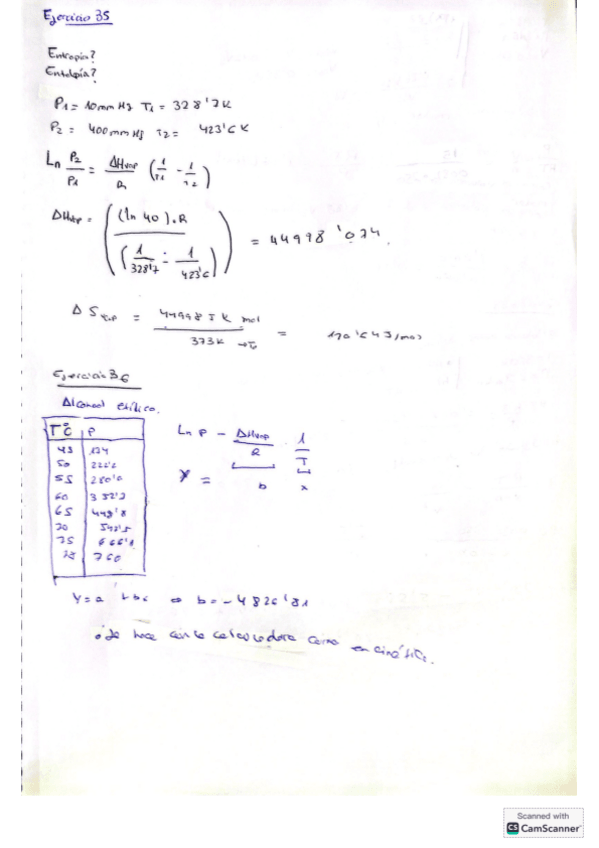 Ejercicio 35
Entropía?
Entalpía?
P1 = 10mmHg T1 = 328'7K
P2 = 400mmHg T2 = 423'6K
Ln P2/P1 = ΔHvap/R (1/T1 - 1/T2)
ΔHvap = ((ln 40).R / (1/328'7 - 1/423'6)) = 44998'074.
ΔSvap = 44998 J K mol / 373K → Te =
Ejercicio 36
Alcohol etílico.
TºC P
50 222'2
55 280'6
65 448'8
75 666'1
78 760
Ln P - ΔHvap/R . 1/T
Y = b x
Y = a + bx ⇒ b = -4826'81
Se hace con la calculadora como en cinética.
Scanned with
CS CamScanner